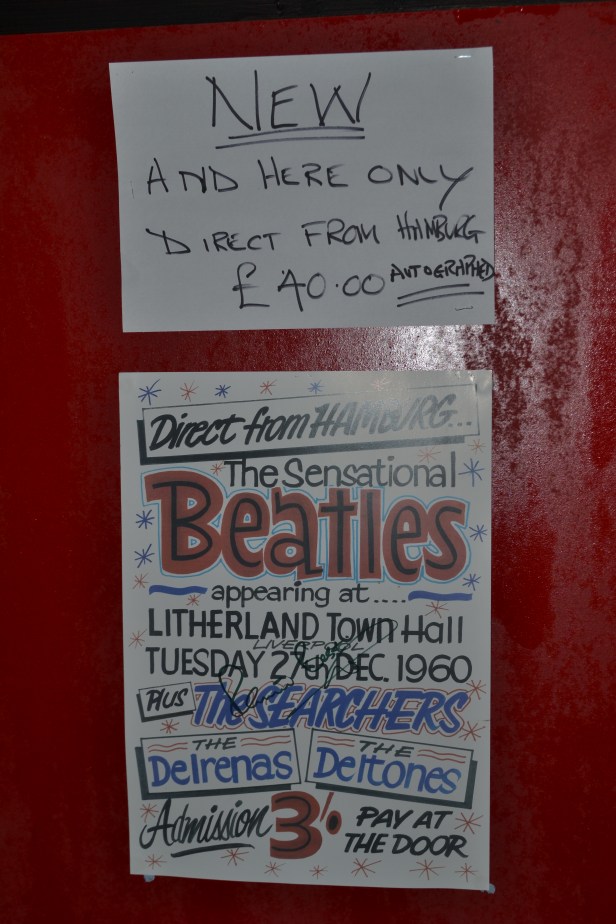 NEW
AND HERE ONLY
DIRECT FROM HAMBURG
£40.00 AUTOGRAPHED
Direct from HAMBURG...
The Sensational
Beatles
appearing at....
LITHERLAND TOWN Hall
LIVERPOOL
TUESDAY 27th DEC. 1960
PLUS The SEARCHERS
THE Delrenas THE Deltones
Admission 3/- PAY AT
THE DOOR